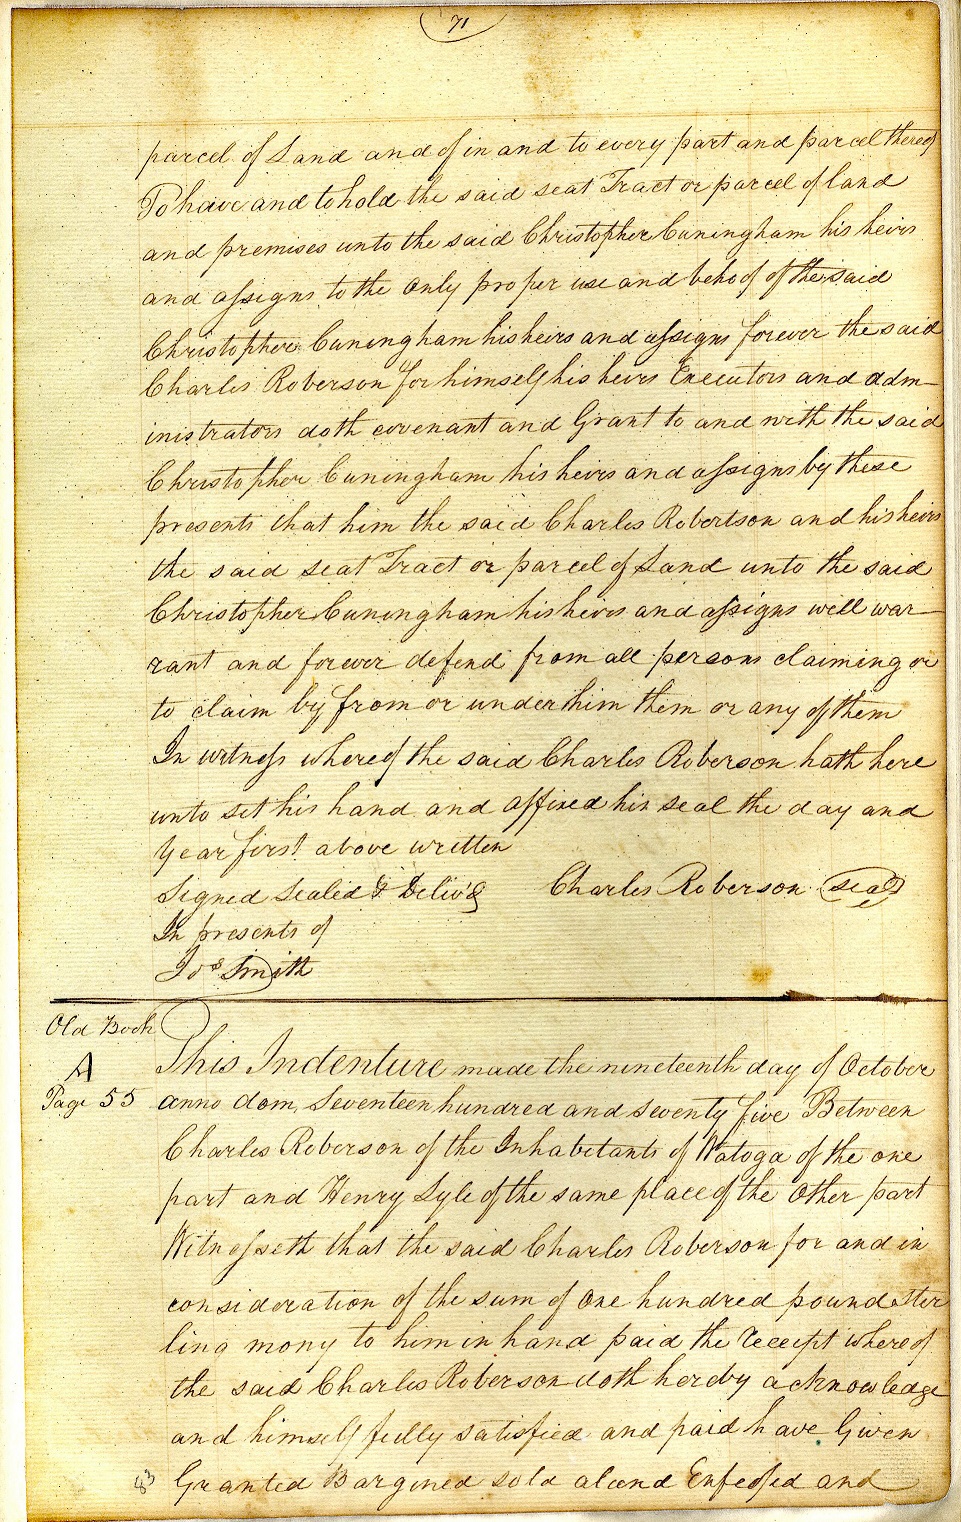 71
parcel of Land and of in and to every part and parcel thereof
To have and to hold the said seat Tract or parcel of land
and premises unto the said Christopher Cuningham his heirs
and assigns to the only proper use and behoof of the said
Christopher Cuningham his heirs and assigns forever the said
Charles Roberson for himself his heirs Executors and adm-
inistrators doth covenant and Grant to and with the said
Christopher Cuningham his heirs and assigns by these
presents that him the said Charles Robertson and his heirs
the said seat Tract or parcel of Land unto the said
Christopher Cuningham his heirs and assigns well war-
rant and forever defend from all persons claiming or
to claim by from or under him them or any of them
In witness whereof the said Charles Roberson hath here
unto set his hand and affixed his seal the day and
year first above written
Signed Sealed & Deliv'd Charles Roberson seal
In presents of
Jos Smith
Old Book
A
Page 55
This Indenture made the nineteenth day of October
anno dom, Seventeen hundred and seventy five Between
Charles Roberson of the Inhabitants of Watoga of the one
part and Henry Lyle of the same place of the Other part
Witnesseth that the said Charles Roberson for and in
consideration of the sum of One hundred pound ster
ling mony to him in hand paid the receipt whereof
the said Charles Roberson doth herdby acknowledge
and himself fully satisfied and paid have Given
83 Granted Bargined sold aliend Enfeofed and